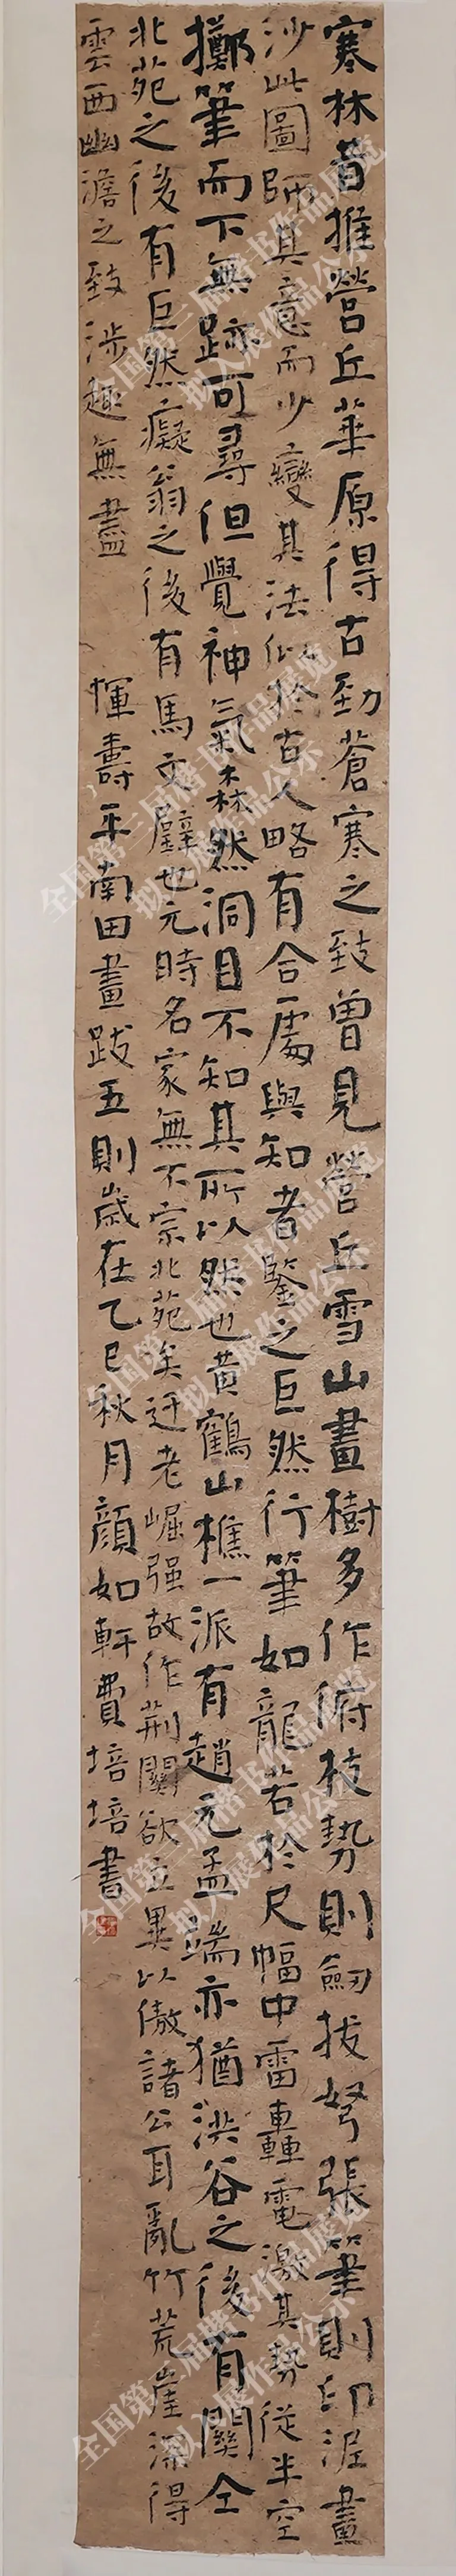 寒林昔推營丘華原得古勁蒼寒之致曾見營丘雪山畫樹多作俯枝勢則劒拔弩張筆則印泥畫
沙此圖師其意而少變其法似於古人略有合處與知者鑒之巨然行筆如龍若於尺幅中雷轟電激其勢從半空
擲筆而下無跡可尋但覺神氣森然洞目不知其所以然也黄鶴山樵一派有趙元孟端亦猶洪谷之後有關仝
北苑之後有巨然癡翁之後有馬文璧也元時名家無不宗北苑矣迂老崛强故作荆關欲立異以傲諸公耳亂竹荒崖深得
雲西幽澹之致涉趣無盡 惲壽平南田畫跋五則歲在乙巳秋月顔如軒費培培書
全国第三届楷书作品展览
拟入展作品公示
全国第三届楷书作品展览
拟入展作品公示
全国第三届楷书作品展览
拟入展作品公示
全国第三届楷书作品展览
拟入展作品公示
全国第三届楷书作品展览
拟入展作品公示